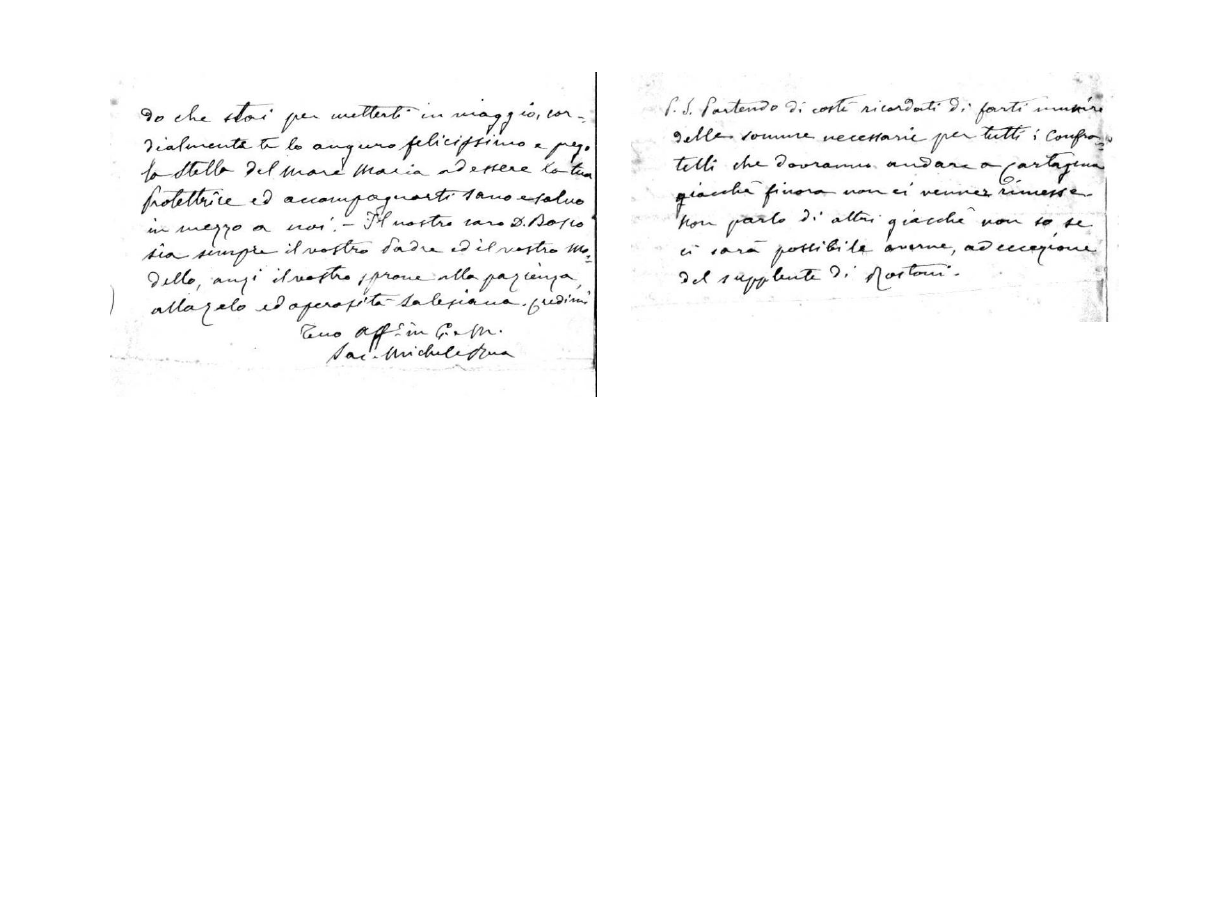 do che stai per metterti in viaggio, cor-
dialmente te lo auguro felicissimo e prego
la Stella del mare Maria ad essere la tua
protettrice ed accompagnarti sano e salvo
in mezzo a noi. - Il nostro caro D. Bosco
sia sempre il vostro Padre ed il vostro Mo-
dello, anzi il vostro sprone alla pazienza,
allo zelo ed operosità Salesiana. Credimi
Tuo Aff. in G. e M.
Sac. Michele Rua
P.S. Partendo di costì ricordati di farti munire
delle somme necessarie per tutti i Confra-
telli che dovranno andare a Cartagena
giacchè finora non ci venner rimesse.
Non parlo di altri giacchè non so se
ci sarà possibile averne, ad eccezione
del supplente di Rostoni.